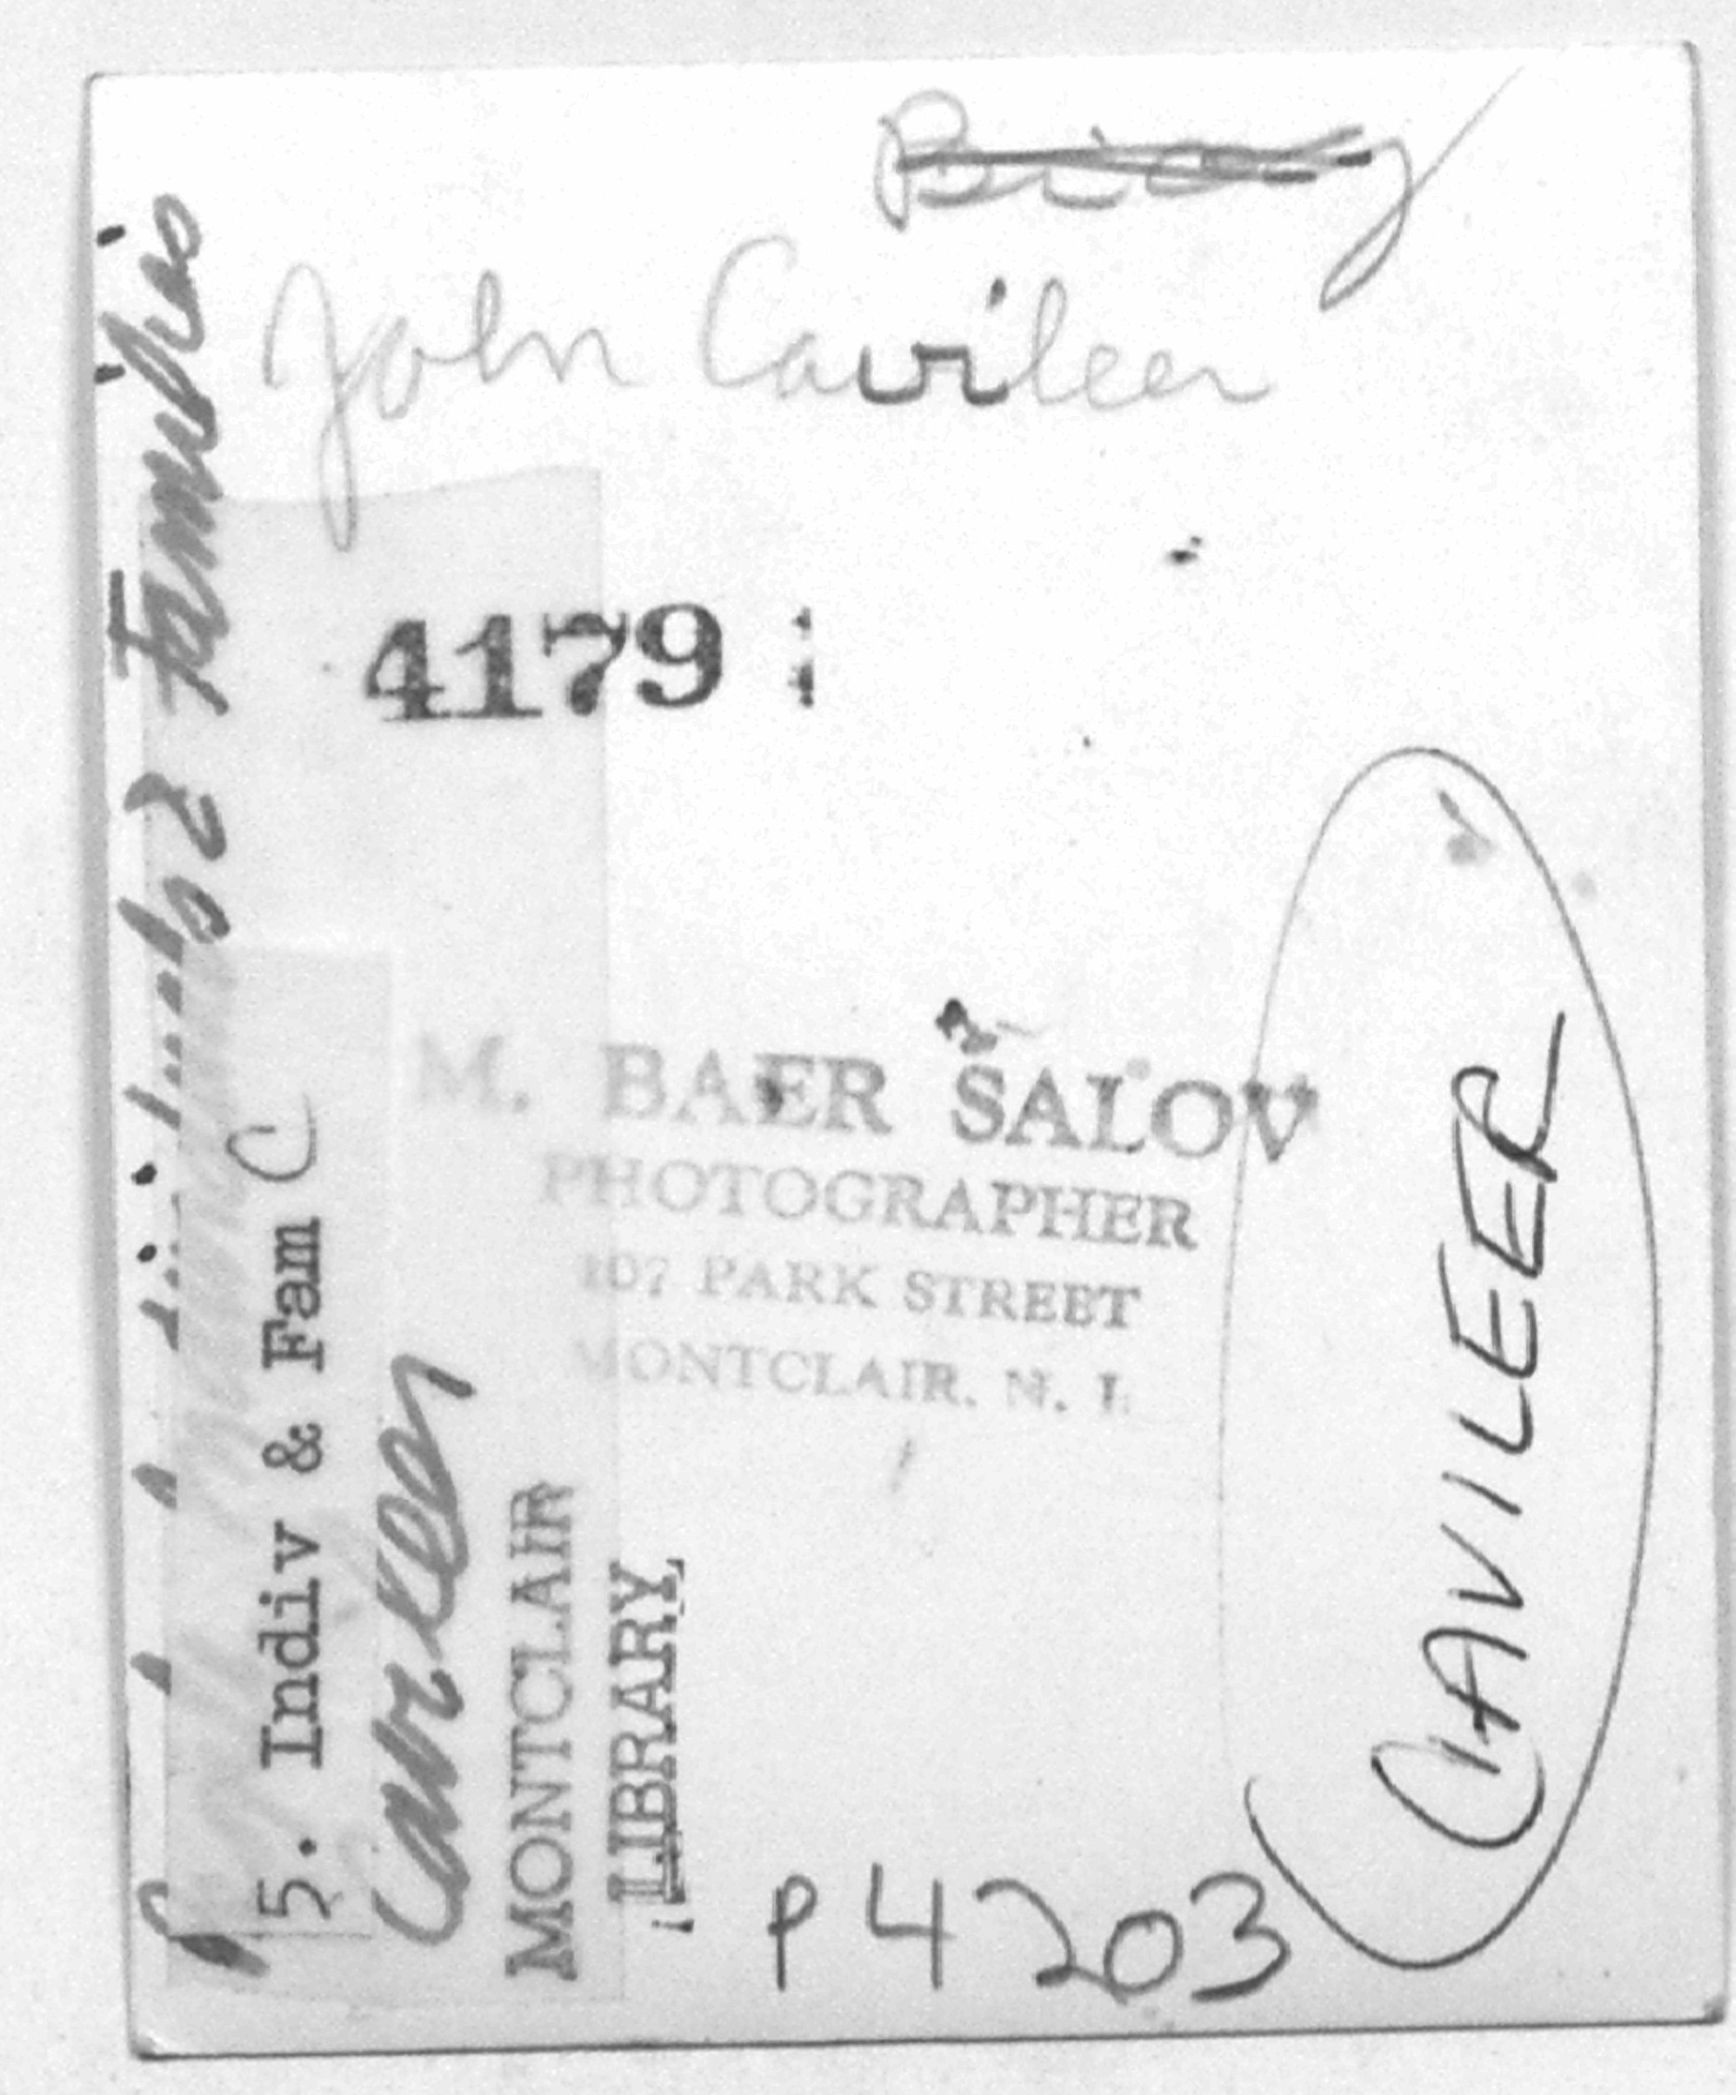 John Cavileer
4179
M. BAER SALOV
PHOTOGRAPHER
107 PARK STREET
MONTCLAIR, N. J.
P4203
CAVILEER
Families
5. Indiv & Fam C
MONTCLAIR
LIBRARY